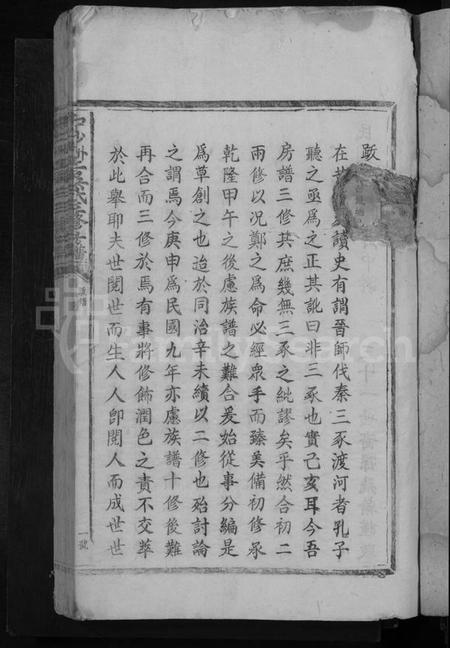 跋
在昔讀史有謂晉師伐秦三豕渡河者孔子
聽之亟爲之正其訛曰非三豕也實己亥耳今吾
房譜三修其庶幾無三豕之紕謬矣乎然合初二
兩修以况鄭之爲命必經衆手而臻美備初修承
乾隆甲午之後慮族譜之難合爰始從事分編是
爲草創之也迨於同治辛未續以二修也殆討論
之謂焉今庚申爲民國九年亦慮族譜十修後難
再合而三修於焉有事將修飾潤色之責不交萃
於此舉耶夫世閱世而生人人卽閱人而成世世
一號
FamilySearch